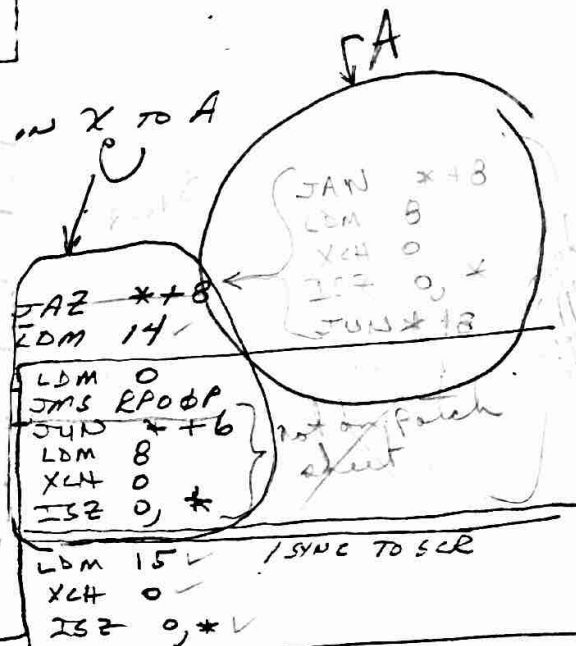 A
IN X TO A
JAN *+8
LDM 8
XCH 0
ISZ 0, *
JUN *+8
JAZ *+8
LDM 14 ✓
LDM 0
JMS RPOØP
JUN *+6
LDM 8
XCH 0
ISZ 0, *
not on patch
sheet
LDM 15 ✓ / SYNC TO SCR
XCH 0 ✓
ISZ 0, * ✓